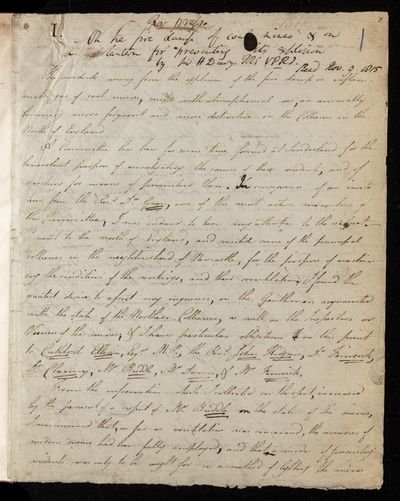 1
I.
On the fire damp of coal mines & on
a lantern for preventing its explosion
by Sir H Davy. FRS VPRI.
Read Nov. 9 1815
The accidents arising from the explosion of the fire damp or inflam-
mable gas of coal mines, mixed with atmospherical air, are annually
becoming more frequent and more destructive in the Collieries in the
North of England.
A Committee has been for some time formed at Sunderland for the
benevolent purpose of investigating the causes of these accidents, and of
searching for means of preventing them. In consequence of an invita-
tion from the Rev. Dr. Gray, one of the most active members of
this Committee, I was induced to turn my attention to the subject.
I went to the north of England, and visited some of the principal
collieries in the neighbourhood of Newcastle, for the purpose of ascertain-
ing the condition of the workings, and their ventilation. I found the
greatest desire to assist my inquiries, in the Gentlemen acquainted
with the state of the Northern Collieries, as well as the Inspectors or
Viewers of the mines; & I have particular obligations on this point
to Cuthbert Ellison, Esqr. M.P., the Revd. John Hodgson, Dr. Fenwick,
Dr. Clanny, Mr. Buddle, Mr. & Mr. Fenwick.
From the information which I collected on the spot, increased
by the perusal of a report of Mr. Buddle on the state of the mines,
I was convinced that, as far as ventilation was concerned, the resources of
modern science had been fully employed; and that a mode of preventing
accidents was only to be sought for in a method of lighting the mines